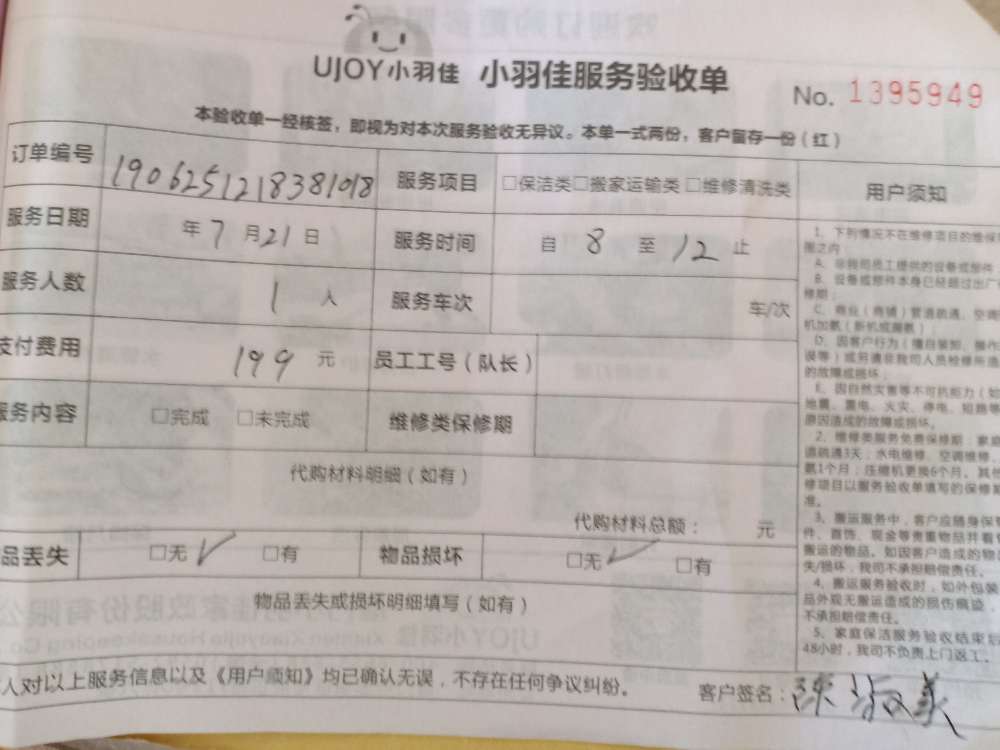 UJOY小羽佳 小羽佳服务验收单
No. 1395949
本验收单一经核签，即视为对本次服务验收无异议。本单一式两份，客户留存一份（红）
订单编号 1906251218381018 服务项目 □保洁类□搬家运输类□维修清洗类
服务日期 年7月21日 服务时间 自 8 至 12 止
服务人数 1 人 服务车次 车/次
支付费用 199 元 员工工号（队长）
服务内容 □完成 □未完成 维修类保修期
代购材料明细（如有）
代购材料总额： 元
品丢失 □无 ✓ □有 物品损坏 □无 ✓ □有
物品丢失或损坏明细填写（如有）
人对以上服务信息以及《用户须知》均已确认无误，不存在任何争议纠纷。 客户签名：陈
用户须知
1、下列情况不在维修项目的维保
围之内：
A、非我司员工提供的设备或部件；
B、设备或部件本身已经超过出厂
修期；
C、商业（商铺）管道疏通、空调
机加氨（新机或漏氨）；
D、因客户行为（擅自装卸、操作
误等）或另请非我司人员检修所造
的故障或损坏；
E、因自然灾害等不可抗能力（如
地震、雷电、火灾、停电、短路等
原因造成的故障或损坏。
2、维修类服务免费保修期：家庭
道疏通3天；水电维修、空调维修、
氨1个月；压缩机更换6个月。其他
修项目以服务验收单填写的保修期
准。
3、搬运服务中，客户应随身保管
件、首饰、现金等贵重物品并看管
搬运的物品。如因客户造成的物
失/损坏，我司不承担赔偿责任。
4、搬运服务验收时，如外包装
品外观无搬运造成的损伤痕迹，
不承担赔偿责任。
5、家庭保洁服务验收结束后
48小时，我司不负责上门返工。